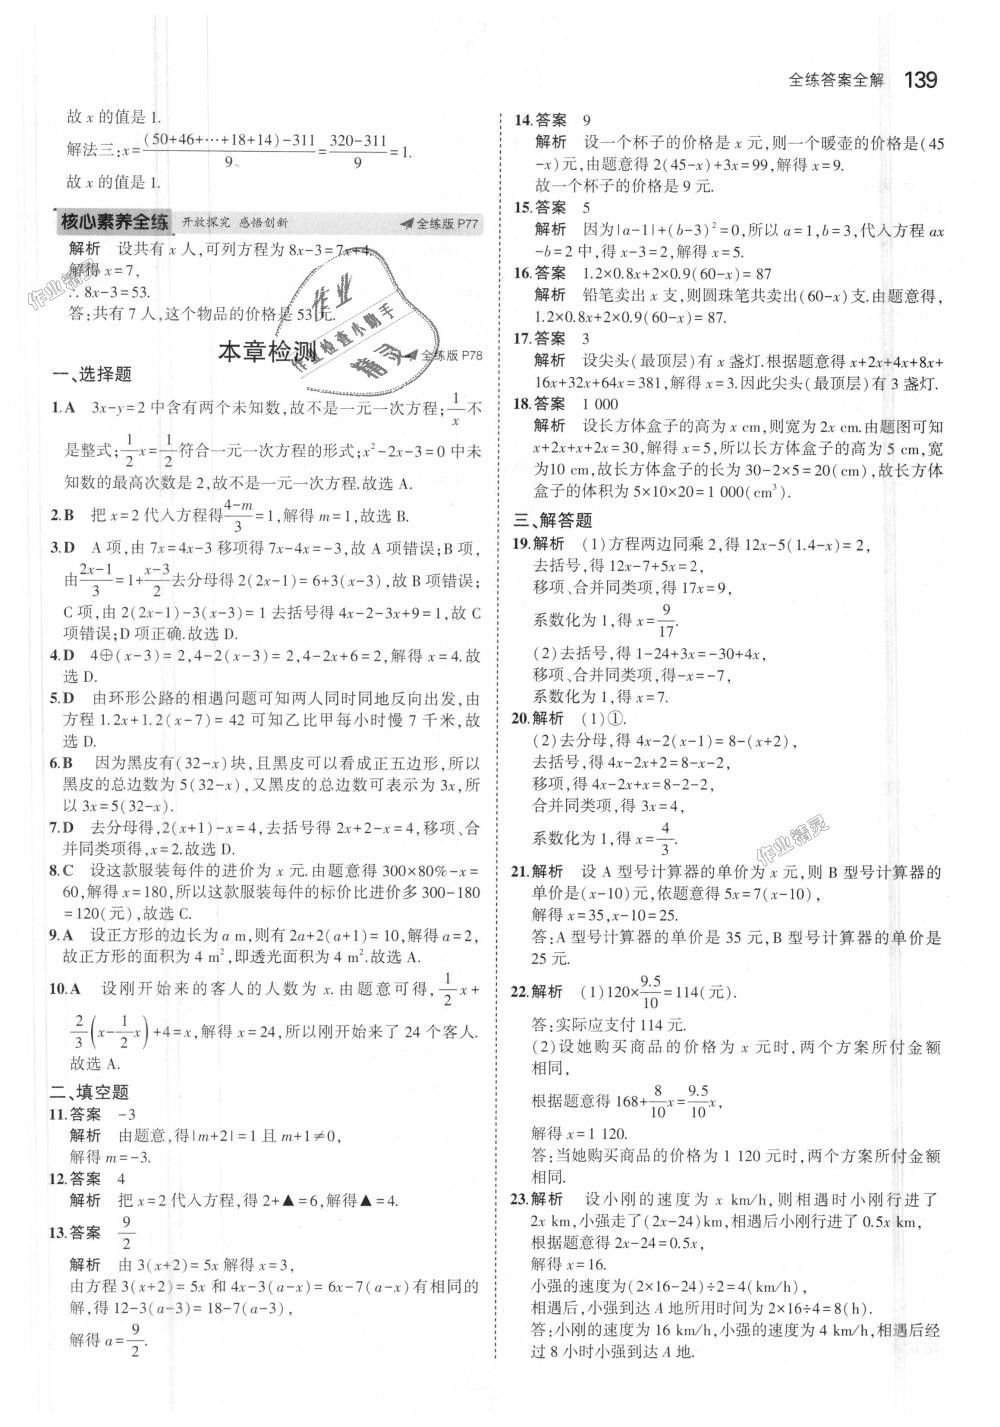 全练答案全解 139
故 x 的值是 1.
解法三:x=\frac{(50+46+⋯+18+14)-311}{9}=\frac{320-311}{9}=1.
故 x 的值是 1.
核心素养全练 开放探究 感悟创新 全练版 P77
解析 设共有 x 人,可列方程为 8x-3=7x+4.
解得 x=7,
∴8x-3=53.
答:共有 7 人,这个物品的价格是 53 元.
本章检测 全练版 P78
一、选择题
1.A 3x-y=2 中含有两个未知数,故不是一元一次方程;\frac{1}{x}不
是整式;\frac{1}{2}x=\frac{1}{2}符合一元一次方程的形式;x²-2x-3=0 中未
知数的最高次数是 2,故不是一元一次方程.故选 A.
2.B 把 x=2 代入方程得\frac{4-m}{3}=1,解得 m=1,故选 B.
3.D A 项,由 7x=4x-3 移项得 7x-4x=-3,故 A 项错误;B 项,
由\frac{2x-1}{3}=1+\frac{x-3}{2}去分母得 2(2x-1)=6+3(x-3),故 B 项错误;
C 项,由 2(2x-1)-3(x-3)=1 去括号得 4x-2-3x+9=1,故 C
项错误;D 项正确.故选 D.
4.D 4⊕(x-3)=2,4-2(x-3)=2,4-2x+6=2,解得 x=4.故
选 D.
5.D 由环形公路的相遇问题可知两人同时同地反向出发,由
方程 1.2x+1.2(x-7)=42 可知乙比甲每小时慢 7 千米,故
选 D.
6.B 因为黑皮有(32-x)块,且黑皮可以看成正五边形,所以
黑皮的总边数为 5(32-x),又黑皮的总边数可表示为 3x,所
以 3x=5(32-x).
7.D 去分母得,2(x+1)-x=4,去括号得 2x+2-x=4,移项、合
并同类项得,x=2.故选 D.
8.C 设这款服装每件的进价为 x 元.由题意得 300×80%-x=
60,解得 x=180,所以这款服装每件的标价比进价多 300-180
=120(元),故选 C.
9.A 设正方形的边长为 a m,则有 2a+2(a+1)=10,解得 a=2,
故正方形的面积为 4 m²,即透光面积为 4 m².故选 A.
10.A 设刚开始来的客人的人数为 x.由题意可得,\frac{1}{2}x+
\frac{2}{3}(x-\frac{1}{2}x)+4=x,解得 x=24,所以刚开始来了 24 个客人.
故选 A.
二、填空题
11.答案 -3
解析 由题意,得|m+2|=1 且 m+1≠0,
解得 m=-3.
12.答案 4
解析 把 x=2 代入方程,得 2+▲=6,解得▲=4.
13.答案 \frac{9}{2}
解析 由 3(x+2)=5x 解得 x=3,
由方程 3(x+2)=5x 和 4x-3(a-x)=6x-7(a-x)有相同的
解,得 12-3(a-3)=18-7(a-3),
解得 a=\frac{9}{2}.
14.答案 9
解析 设一个杯子的价格是 x 元,则一个暖壶的价格是(45
-x)元,由题意得 2(45-x)+3x=99,解得 x=9.
故一个杯子的价格是 9 元.
15.答案 5
解析 因为|a-1|+(b-3)²=0,所以 a=1,b=3,代入方程 ax
-b=2 中,得 x-3=2,解得 x=5.
16.答案 1.2×0.8x+2×0.9(60-x)=87
解析 铅笔卖出 x 支,则圆珠笔共卖出(60-x)支.由题意得,
1.2×0.8x+2×0.9(60-x)=87.
17.答案 3
解析 设尖头(最顶层)有 x 盏灯.根据题意得 x+2x+4x+8x+
16x+32x+64x=381,解得 x=3.因此尖头(最顶层)有 3 盏灯.
18.答案 1 000
解析 设长方体盒子的高为 x cm,则宽为 2x cm.由题图可知
x+2x+x+2x=30,解得 x=5,所以长方体盒子的高为 5 cm,宽
为10 cm,故长方体盒子的长为 30-2×5=20(cm),故长方体
盒子的体积为 5×10×20=1 000(cm³).
三、解答题
19.解析 (1)方程两边同乘 2,得 12x-5(1.4-x)=2,
去括号,得 12x-7+5x=2,
移项、合并同类项,得 17x=9,
系数化为 1,得 x=\frac{9}{17}.
(2)去括号,得 1-24+3x=-30+4x,
移项、合并同类项,得-x=-7,
系数化为 1,得 x=7.
20.解析 (1)①.
(2)去分母,得 4x-2(x-1)=8-(x+2),
去括号,得 4x-2x+2=8-x-2,
移项,得 4x-2x+x=8-2-2,
合并同类项,得 3x=4,
系数化为 1,得 x=\frac{4}{3}.
21.解析 设 A 型号计算器的单价为 x 元,则 B 型号计算器的
单价是(x-10)元,依题意得 5x=7(x-10),
解得 x=35,x-10=25.
答:A 型号计算器的单价是 35 元,B 型号计算器的单价是
25 元.
22.解析 (1)120×\frac{9.5}{10}=114(元).
答:实际应支付 114 元.
(2)设她购买商品的价格为 x 元时,两个方案所付金额
相同,
根据题意得 168+\frac{8}{10}x=\frac{9.5}{10}x,
解得 x=1 120.
答:当她购买商品的价格为 1 120 元时,两个方案所付金额
相同.
23.解析 设小刚的速度为 x km/h,则相遇时小刚行进了
2x km,小强走了(2x-24)km,相遇后小刚行进了 0.5x km,
根据题意得 2x-24=0.5x,
解得 x=16.
小强的速度为(2×16-24)÷2=4(km/h),
相遇后,小强到达 A 地所用时间为 2×16÷4=8(h).
答:小刚的速度为 16 km/h,小强的速度为 4 km/h,相遇后经
过 8 小时小强到达 A 地.
作业精灵
作业
作业检查小助手
精灵
作业精灵